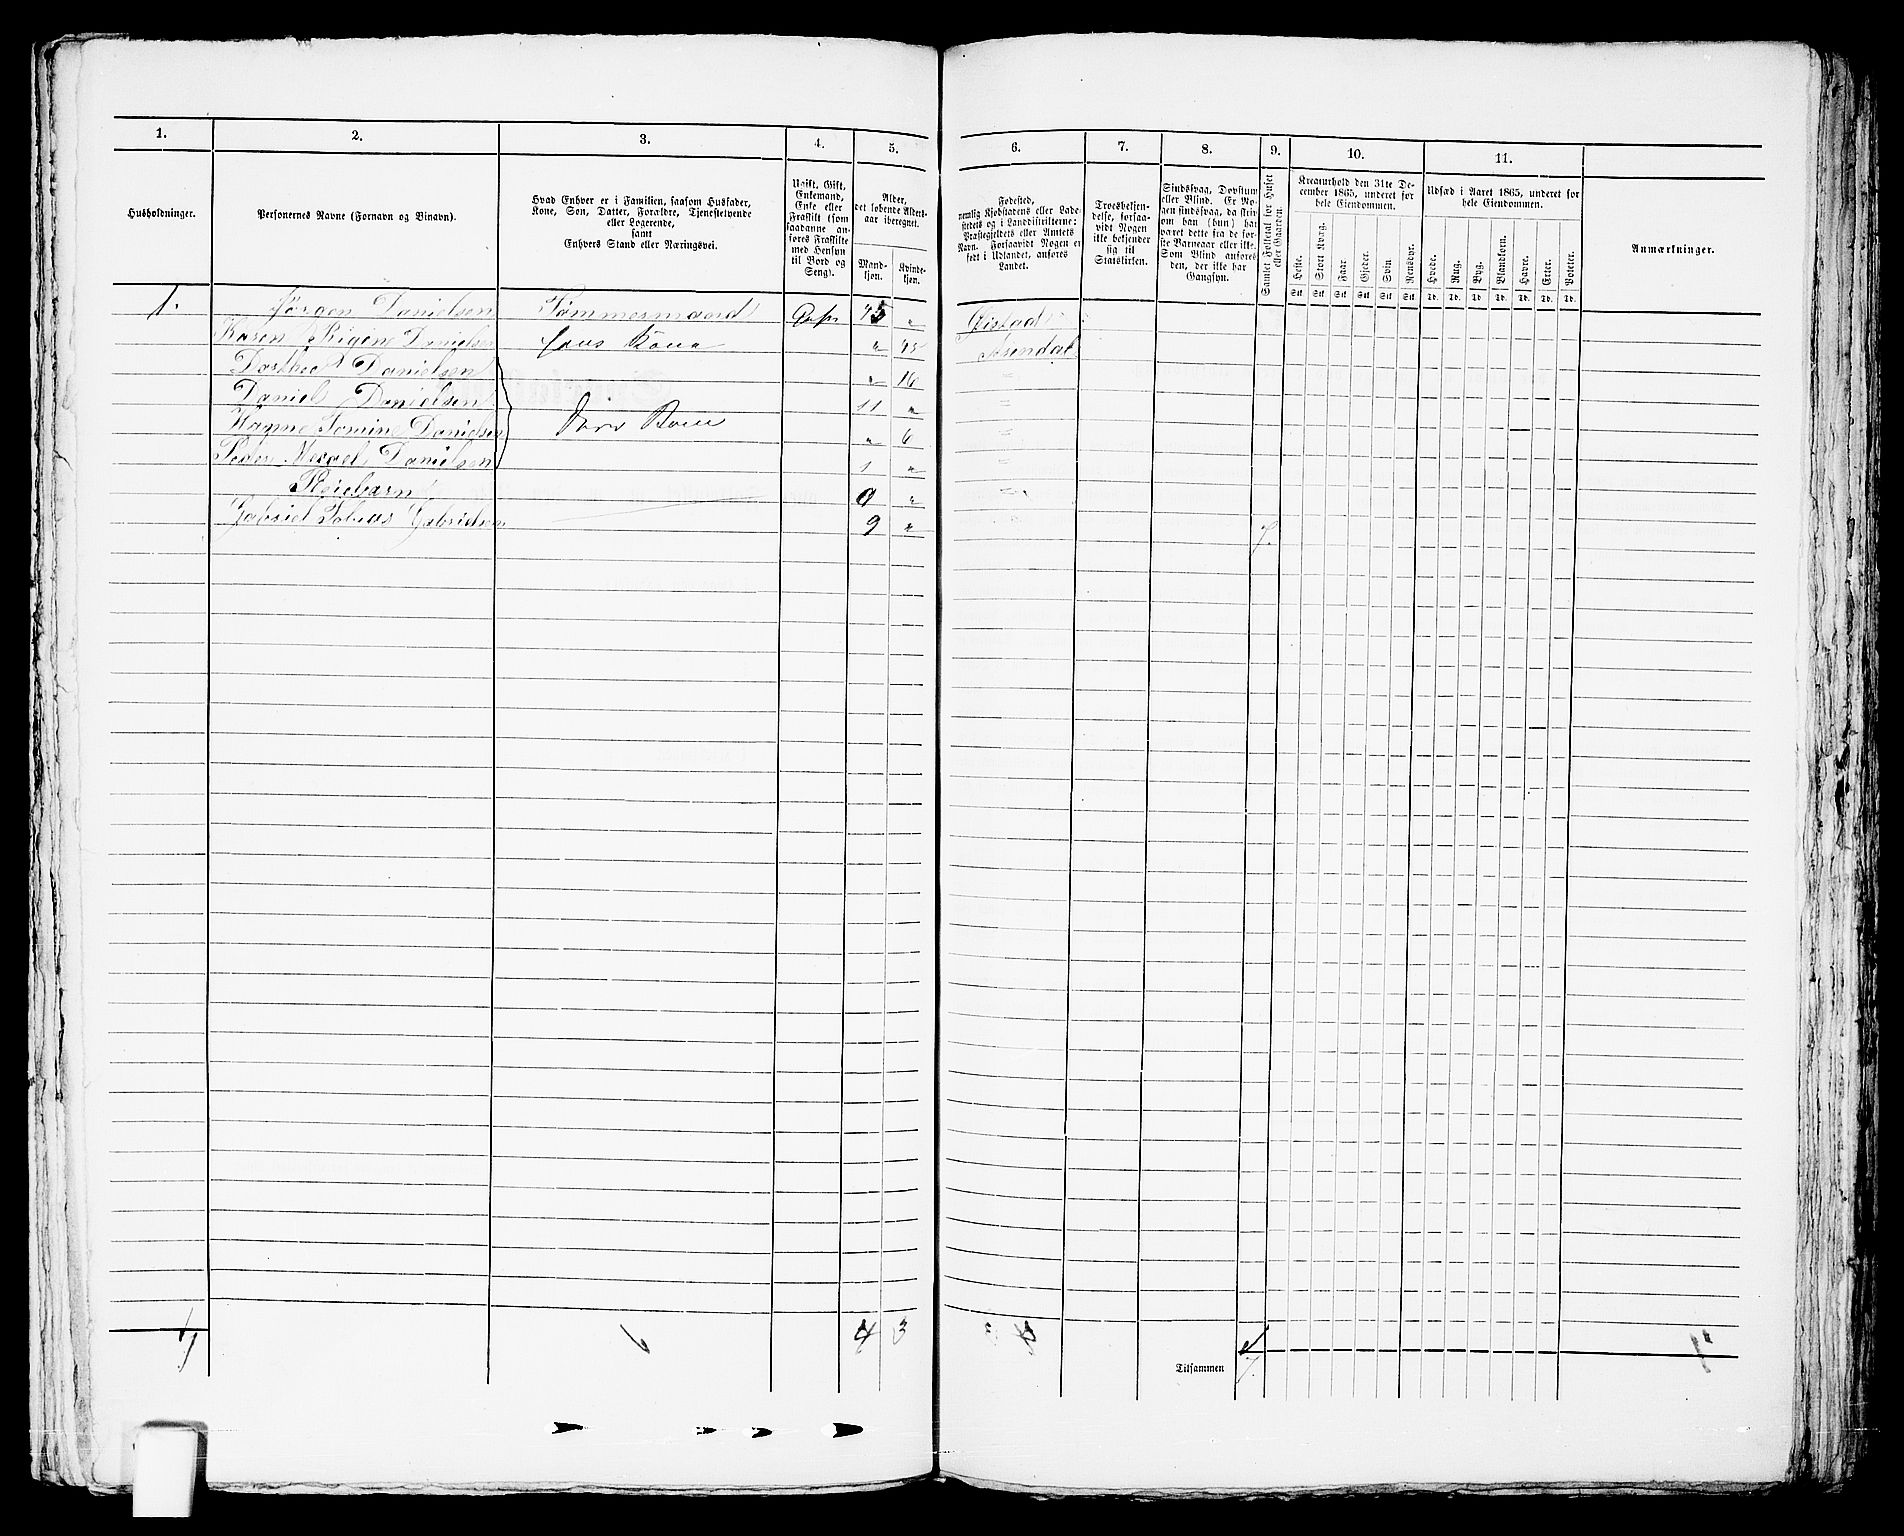 1. 2. 3. 4. 5. 6. 7. 8. 9. 10. 11.
Husholdninger.
Personernes Navne (Fornavn og Binavn).
Hvad Enhver er i Familien, saasom Husfader,
Kone, Søn, Datter, Forældre, Tjenestetyende
eller Logerende,
samt
Enhvers Stand eller Næringsvei.
Ugift, Gift,
Enkemand,
Enke eller
Fraskilt (som
saadanne an-
føres Fraskilte
med Hensyn
til Bord og
Seng).
Alder,
det løbende Alders-
aar iberegnet.
Mand-
kjøn.
Kvinde-
kjøn.
Fødested,
nemlig Kjøbstadens eller Lade-
stedets og i Landdistrikterne:
Præstegjeldets eller Amtets
Navn. Forsaavidt Nogen er
født i Udlandet, anføres
Landet.
Troesbekjen-
delse, forsaa-
vidt Nogen
ikke bekjender
sig til
Statskirken.
Sindssvag, Døvstum
eller Blind. Er No-
gen sindssvag, da skri-
ves om han (hun) har
været dette fra de før-
ste Barneaar eller ikke.
Som Blind anføres
den, der ikke har
Gangsyn.
Samlet Folketal for Huset
eller Gaarden.
Kreaturhold den 31te De-
cember 1865, underet for
hele Eiendommen.
Heste. Stort Kvæg. Faar Gjeder. Svin Rensdyr.
Stk Stk Stk Stk Stk Stk
Udsæd i Aaret 1865, underet for
hele Eiendommen.
Hvede. Rug. Byg. Blandkorn. Havre. Erter. Poteter.
Td. Td. Td Td Td. Td. Td.
Anmærkninger.
1. Jørgen Danielsen Tømmermand 45 „
Karen Danielsen hans Kone „ 45 Arendal
Danielsen „ 16 "
Daniel Danielsen 11 „ "
Hanne Danielsen Børn „ 6 "
Peder Danielsen 1 „ "
Pleiebarn 0 „ "
Gabriel Tobias Gabrielsen 9 „ 7.
4 3
Tilsammen 7.